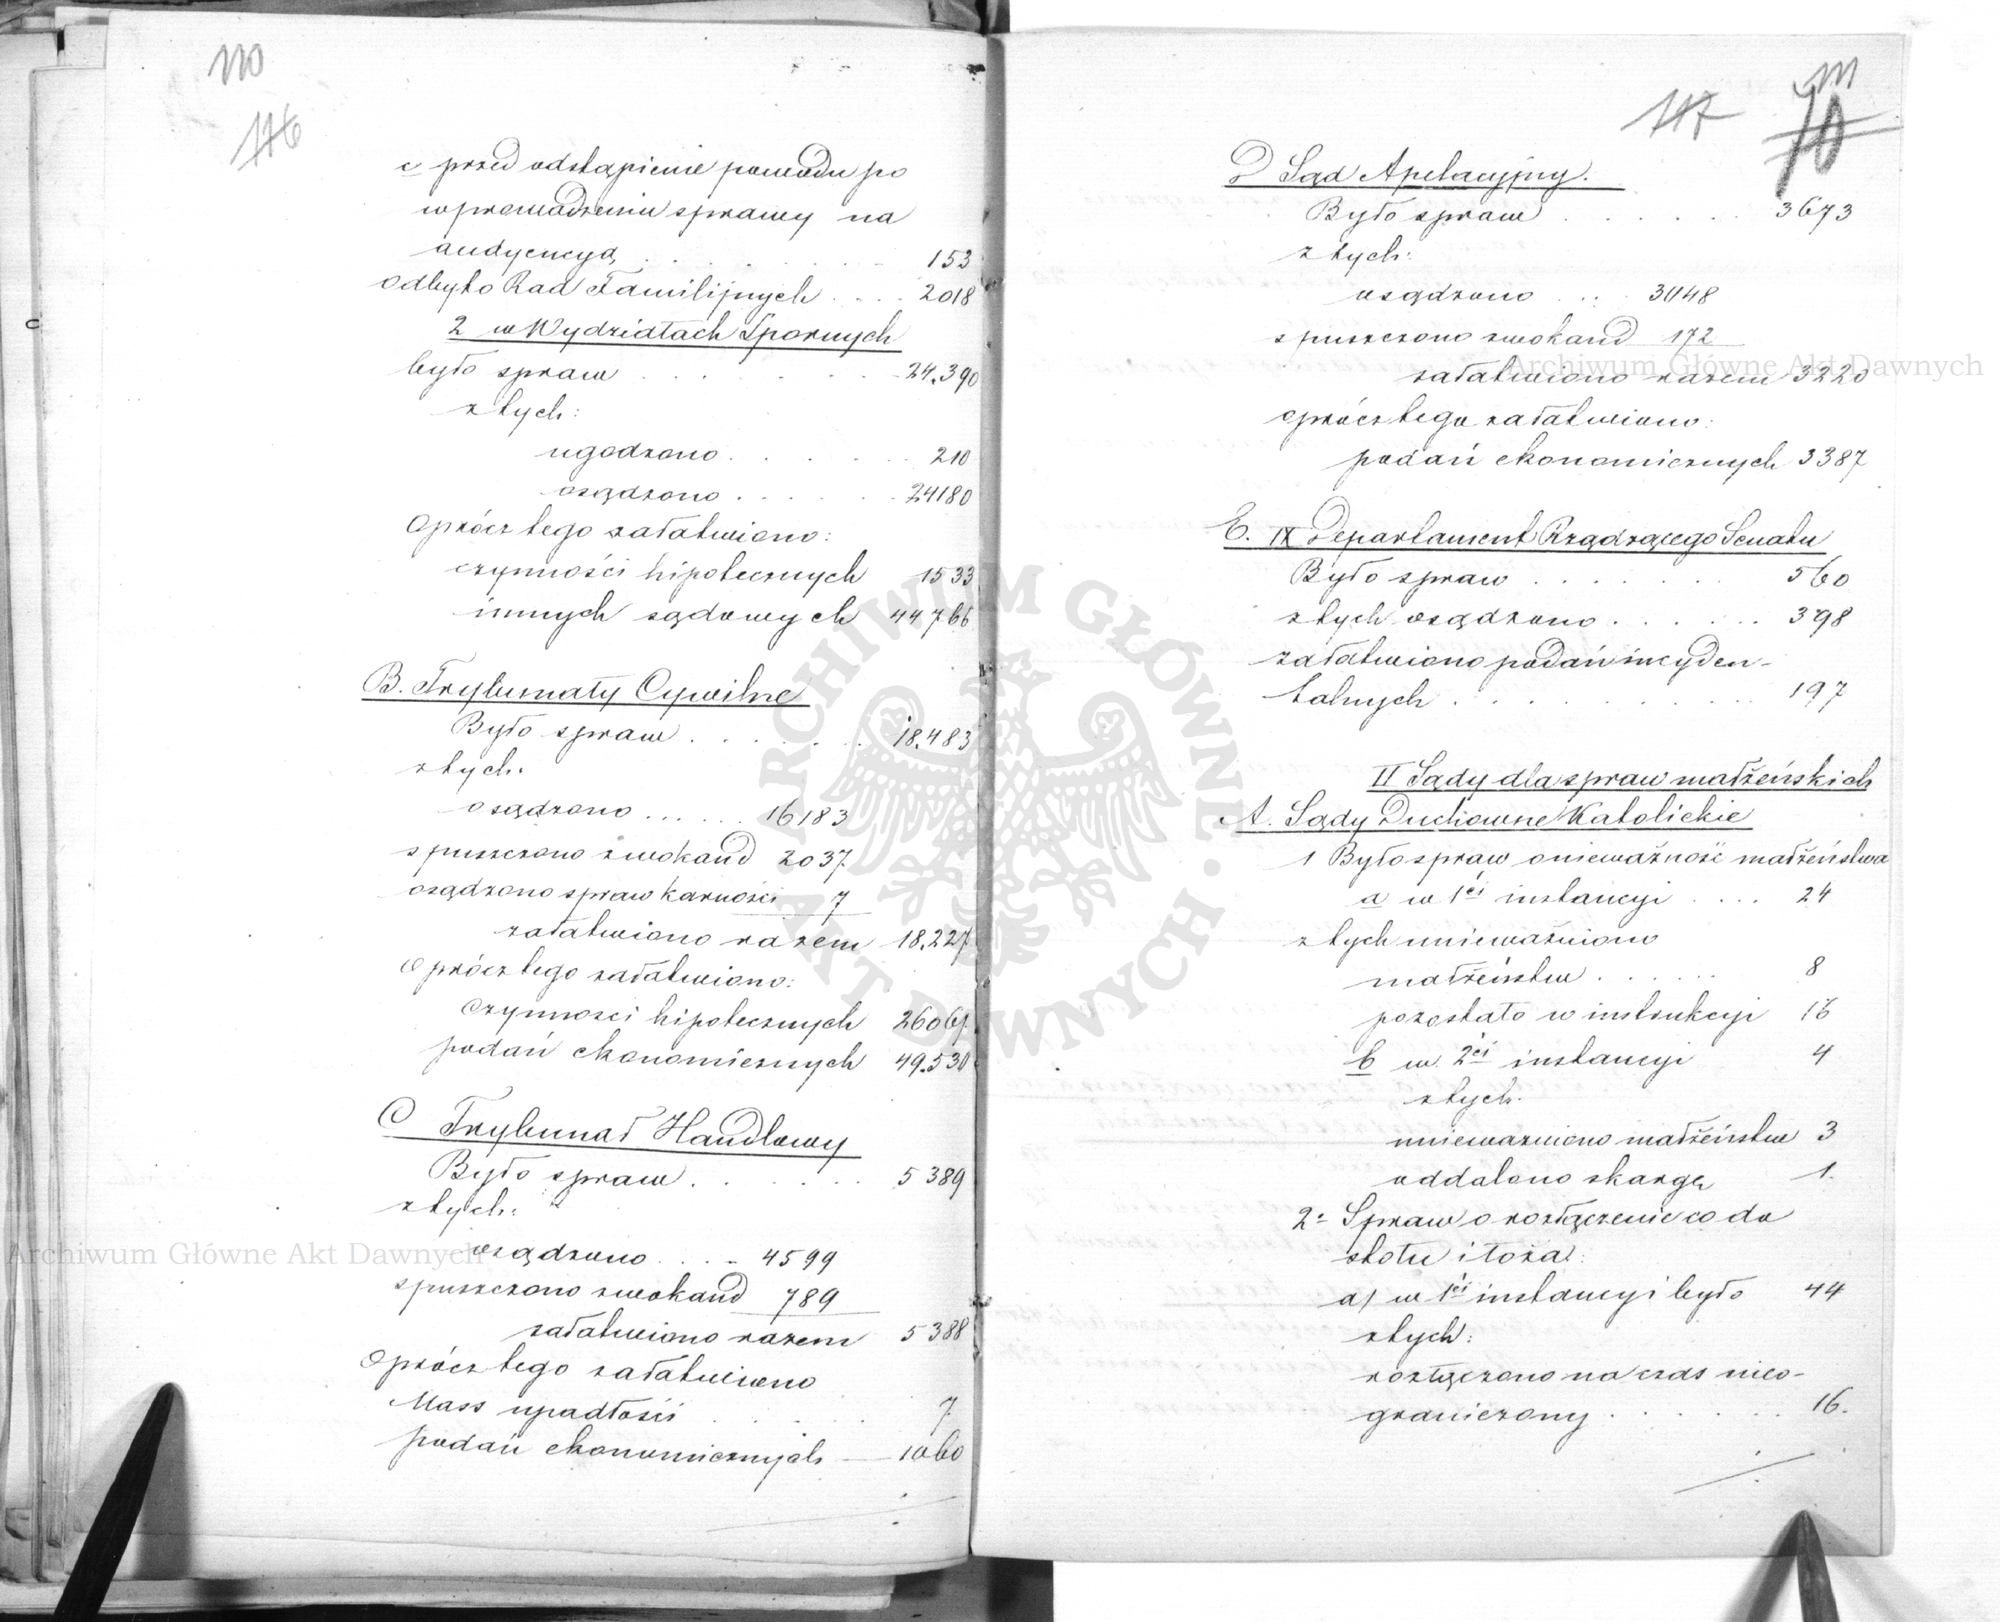 110
116
c przed odstąpienie powodu po
wprowadzeniu sprawy na
audyencyą . . . . . . 153
Odbyto Rad Familijnych . . . . 2018
2 w Wydziałach Spornych
było spraw . . . . . . . 24.390
z tych:
ugodzono . . . . . . 210
osądzono . . . . . . 24180
Oprócz tego załatwiono:
czynności hipotecznych 1533
innych sądowych 44766
B. Trybunały Cywilne
Było spraw . . . . . . 18.483
z tych:
osądzono . . . . . . 16183
spuszczono z wokand 2037
osądzono spraw karności 7
załatwiono razem 18.227
Oprócz tego załatwiono:
Czynności hipotecznych
podań ekonomicznych 49.530
C Trybunał Handlowy
Było spraw . . . . . . 5389
z tych:
osądzono . . . . 4599
spuszczono z wokand 789
załatwiono razem 5388
Oprócz tego załatwiono
Mass upadłości . . . . . 7
podań ekonomicznych — 1060
111
117 70
D Sąd Apelacyjny.
Było spraw . . . . . . 3673
z tych:
osądzono . . . . 3048
spuszczono z wokand 172
załatwiono razem 3220
oprócz tego załatwiono:
podań ekonomicznych 3387
E. IX Departament Rządzącego Senatu
Było spraw . . . . . . . 560
z tych osądzono . . . . . . 398
załatwiono podań incyden-
talnych . . . . . . . . . . 197
II Sądy dla spraw małżeńskich
A. Sądy Duchowne Katolickie
1 Było spraw o nieważność małżeństwa
a w 1ci instancyi . . . . 24
z tych unieważniono
małżeństw . . . . . . 8
pozostało w instrukcyi 16
b w 2ci instancyi 4
z tych:
unieważniono małżeństw 3
oddalono skargę 1.
2o Spraw o rozłączenie co do
stołu i łoża:
a/ w 1ci instancyi było 44
z tych:
rozłączono na czas nieo-
graniczony . . . . . . . 16.
Archiwum Główne Akt Dawnych
Archiwum Główne Akt Dawnych
ARCHIWUM GŁÓWNE · AKT DAWNYCH ·